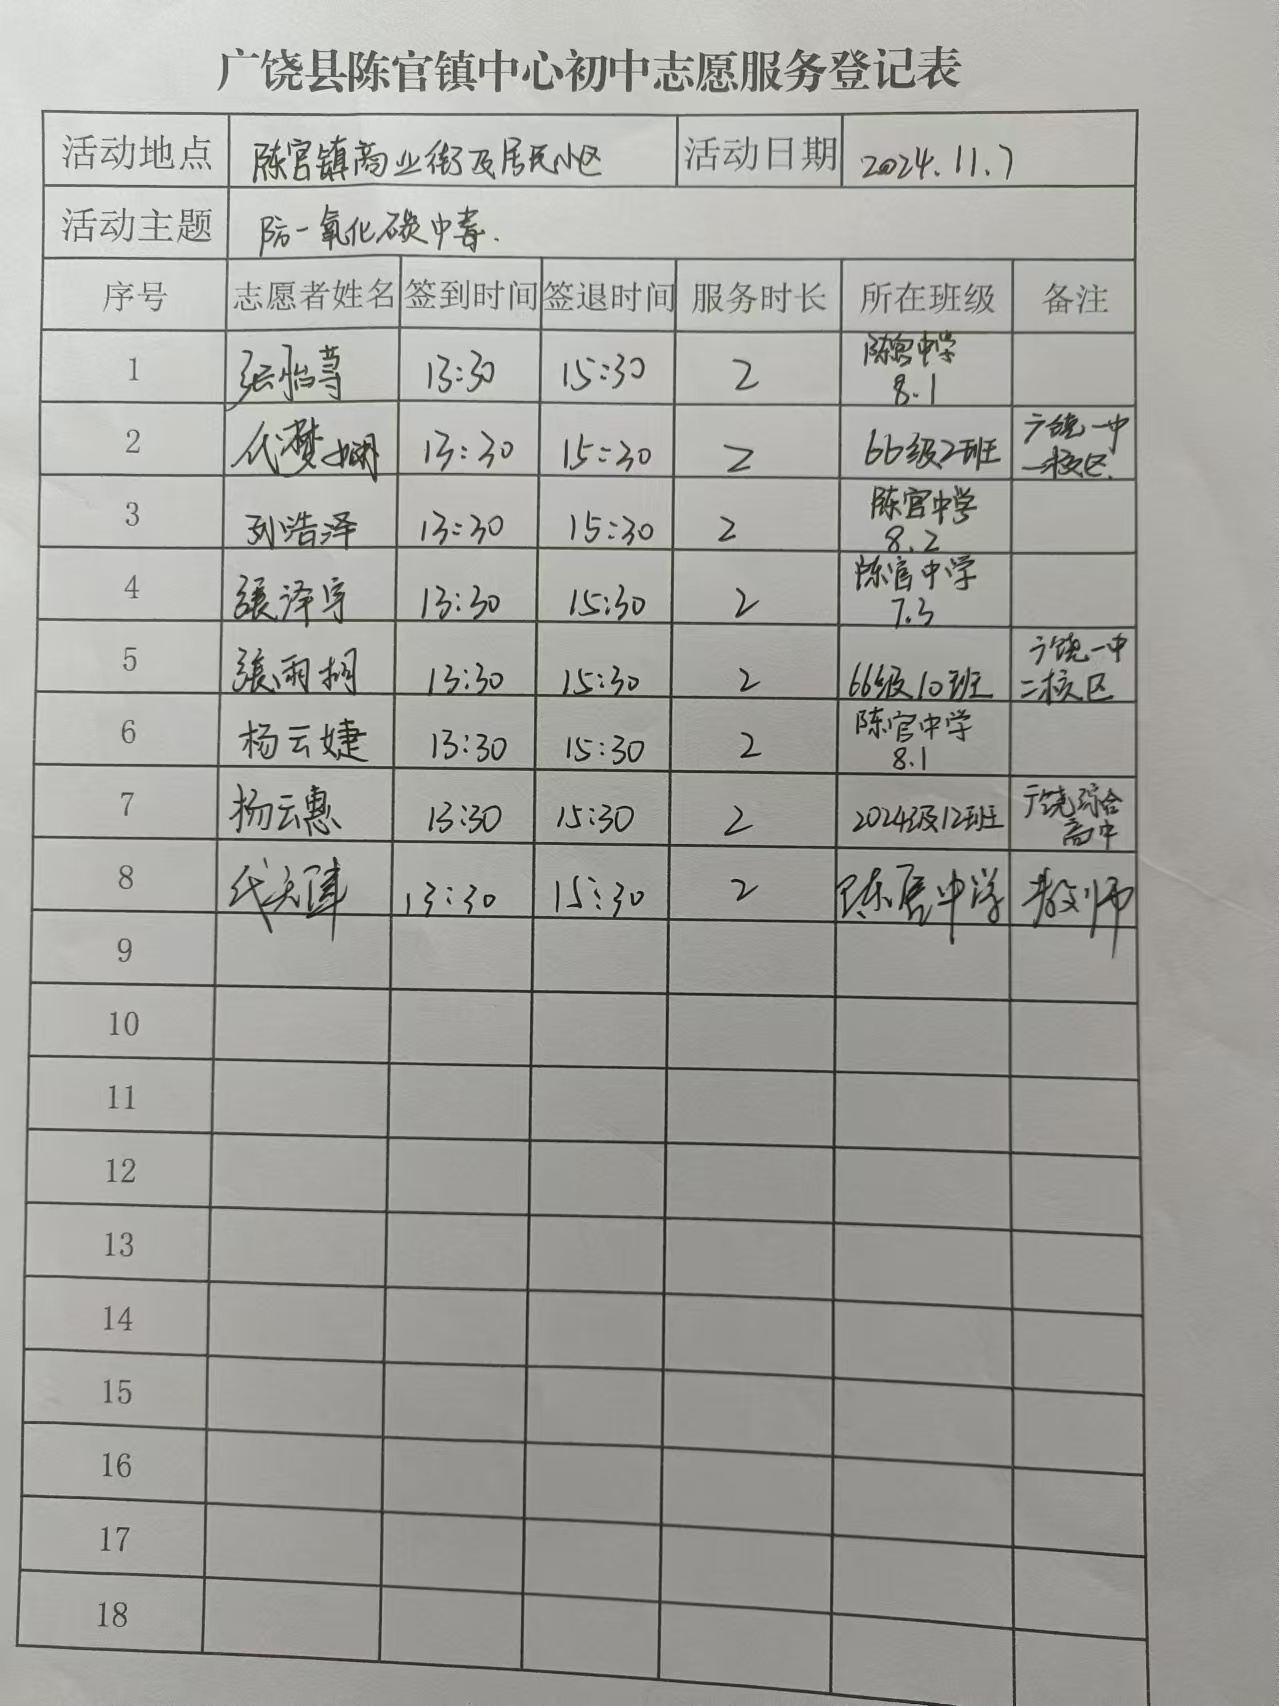 广饶县陈官镇中心初中志愿服务登记表
活动地点 陈官镇商业街及居民小区 活动日期 2024.11.7
活动主题 防一氧化碳中毒.
序号 志愿者姓名 签到时间 签退时间 服务时长 所在班级 备注
1 张怡萼 13:30 15:30 2 陈官中学 8.1
2 代梦娴 13:30 15:30 2 66级2班 广饶一中一校区.
3 刘浩泽 13:30 15:30 2 陈官中学 8.2
4 張泽宇 13:30 15:30 2 陈官中学 7.3
5 張雨桐 13:30 15:30 2 66级10班 广饶一中二校区
6 杨云婕 13:30 15:30 2 陈官中学 8.1
7 杨云惠 13:30 15:30 2 2024级12班 广饶综合高中
8 13:30 15:30 2 陈官中学 教师
9
10
11
12
13
14
15
16
17
18